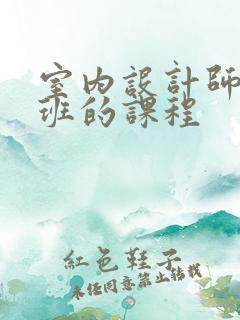 室內設計師
班的課程
紅色鞋子
未經同意禁止轉載